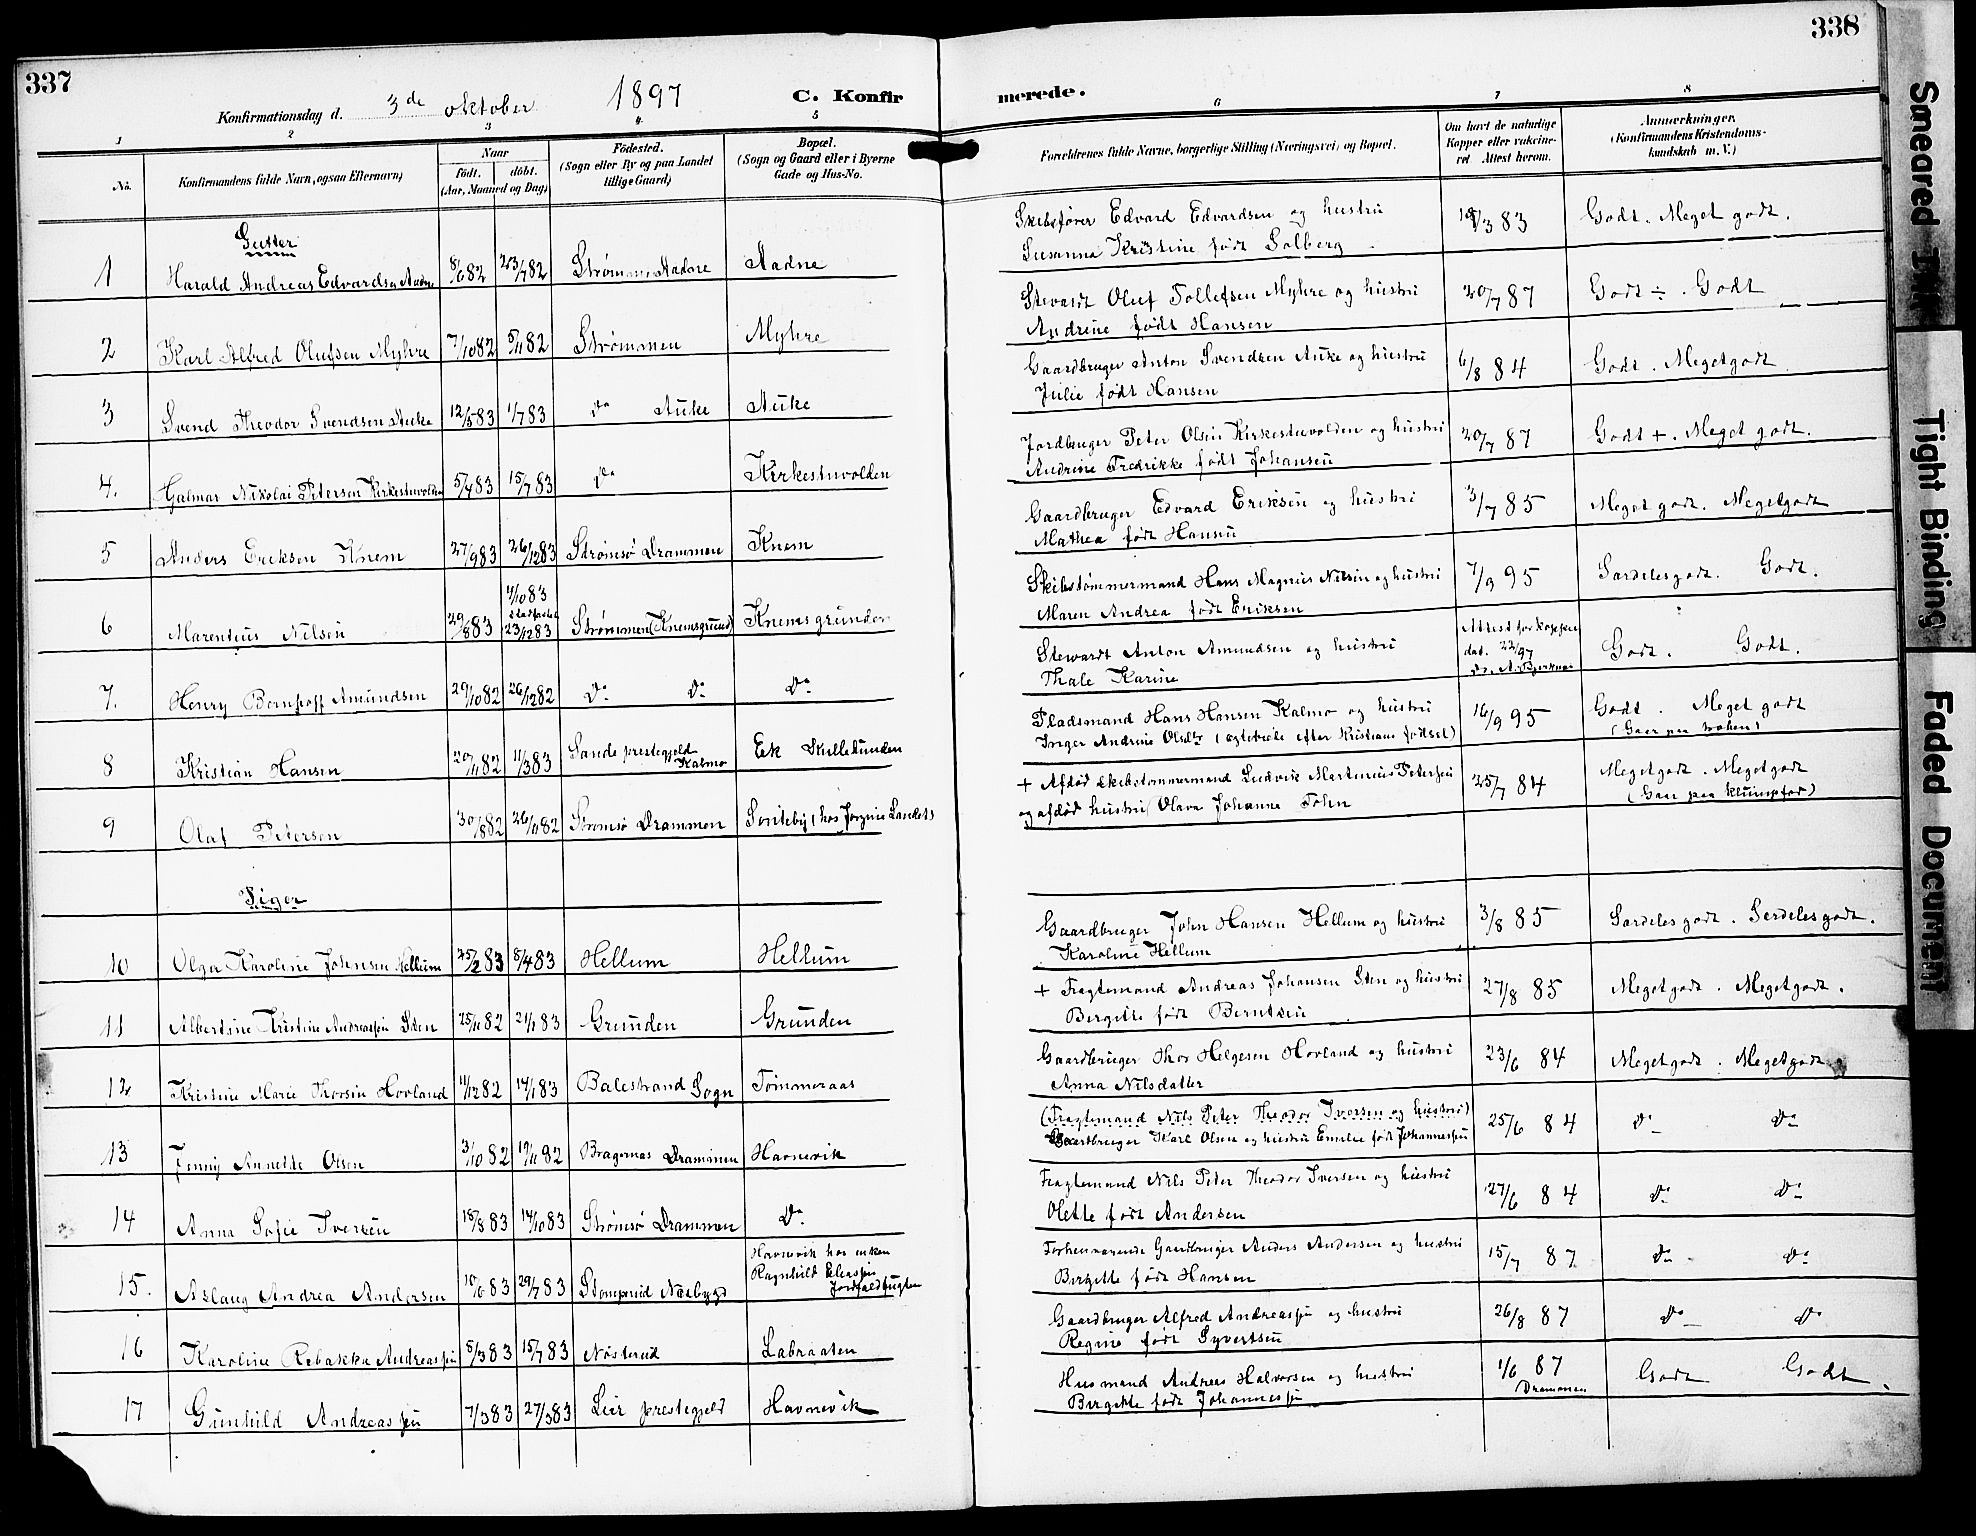 337
338
Konfirmationsdag d. 3de oktober 1897 C. Konfir
merede.
1 2 3 4 5 6 7 8
No.
Konfirmandens fulde Navn, ogsaa Efternavn)
Naar
födt. döbt.
(Aar, Maaned og Dag)
Födested.
(Sogn eller By og paa Landet
tillige Gaard)
Bopæl.
(Sogn og Gaard eller i Byerne
Gade og Hus-No.
Forældrenes fulde Navne, borgerlige Stilling (Næringsvei) og Bopæl.
Om havt de naturlige
Kopper eller vakcine-
ret Attest herom.
Anmærkninger.
(Konfirmandens Kristendoms-
kundskab m. V.)
Gutter
1 Harald Andreas Edvardsen Aadne 8/6 82 23/7 82 Strømmen Aadne Aadne
Skibsfører Edvard Edvardsen og hustru
Susanna Kristine født Solberg 19/3 83 Godt. Meget godt.
2 Karl Alfred Olufsen Myhre 7/10 82 5/11 82 Strømmen Myhre
Stevardt Oluf Tollefsen Myhre og hustru
Andrine født Hansen 20/7 87 Godt ÷. Godt
3 Svend Theodor Svendsen Auke 12/5 83 1/7 83 Do Auke Auke
Gaardbruger Anton Svendsen Auke og hustru
Julie født Hansen 6/8 84 Godt. Megetgodt.
4. Hjalmar Nikolai Petersen Kirkestuvolden 5/4 83 15/7 83 Do Kirkestuvolden
Jordbruger Peter Olsen Kirkestuvolden og hustru
Andrine Fredrikke født Johansen 20/7 87 Godt +. Meget godt.
5 Anders Eriksen Knem 27/9 83 26/12 83 Strømsø Drammen Knem
Gaardbruger Edvard Eriksen og hustru
Mathea født Hansen 3/7 85 Meget godt. Megetgodt
6 Marentius Nilsen 29/8 83 4/10 83
stadfæstet
23/12 83 Strømmen (Knemsgrund) Knemsgrunden
Skibstømmermand Hans Magnus Nilsen og hustru
Maren Andrea født Eriksen 7/9 95 Særdelesgodt. Godt.
7. Henry Bernhoff Amundsen 29/10 82 26/12 82 Do Do Do
Stewardt Anton Amundsen og hustru
Thale Karine Attest for kopper
dat. 22/9 97 Godt. Godt.
8 Kristian Hansen 20/11 82 11/3 83 Sande prestegjeld
Kalmo Ek Skullestunden
Pladsmand Hans Hansen Kalmo og hustru
Inger Andrine Olsdtr (ægteviede efter Kristians fødsel) 16/9 95 Godt. Meget godt
9 Olaf Petersen 30/8 82 26/11 82 Strømsø Drammen
+ Afdød skibstømmermand Ludvik Martinius Petersen
og afdød hustru Olava Johanne Tohn 25/7 84 Megetgodt. Megetgodt
(Gaar paa klumpfod)
Piger
10 Olga Karoline Johnsen Hellum 25/2 83 8/4 83 Hellum Hellum
Gaardbruger John Hansen Hellum og hustru
Karoline Hellum 3/8 85 Særdelesgodt. Serdelesgodt.
11 Albertine Kristine Andreassen Sten 25/11 82 21/1 83 Grunden Grunden
+ Fragtemand Andreas Johansen Sten og hustru
Bergitte født Berntsen 27/8 85 Megetgodt. Megetgodt.
12 Kristine Marie Thorsen Hovland 11/12 82 14/1 83 Balestrand Sogn Tømmeraas
Gaardbruger Thor Helgesen Hovland og hustru
Anna Nilsdatter 23/6 84 Megetgodt. Megetgodt
13 Jenny Annette Olsen 3/10 82 19/11 82 Bragernes Drammen Havnevik
(Fragtemand Nils Peter Theodor Iversen og hustru)
Gaardbruger Karl Olsen og hustru Emelie født Johannessen 25/6 84 Do Do
14 Anna Sofie Iversen 18/8 83 14/10 83 Strømsø Drammen Do
Fragtemand Nils Peter Theodor Iversen og hustru
Olette født Andersen 27/6 84 Do Do
15. Aslaug Andrea Andersen 10/6 83 29/7 83 Stomperud Næsbygd Havnevik hos enken
Ragnhild Eliassen
Jordfaldbugten
Forhenværende Gaardbruger Anders Andersen og hustru
Bergette født Hansen 15/7 87 Do Do
16 Karoline Rebakka Andreassen 5/3 83 15/7 83 Nøsterud Labraaten
Gaardbruger Alfred Andreassen og hustru
Regine født Syvertsen 26/8 87 Do Do
17 Gunhild Andreassen 7/3 83 27/5 83 Lier prestegjeld Havnevik
Husmand Andreas Halvorsen og hustru
Bergitte født Johannessen 1/6 87
Drammen Godt Godt.
Smeared Ink
Tight Binding
Faded Document